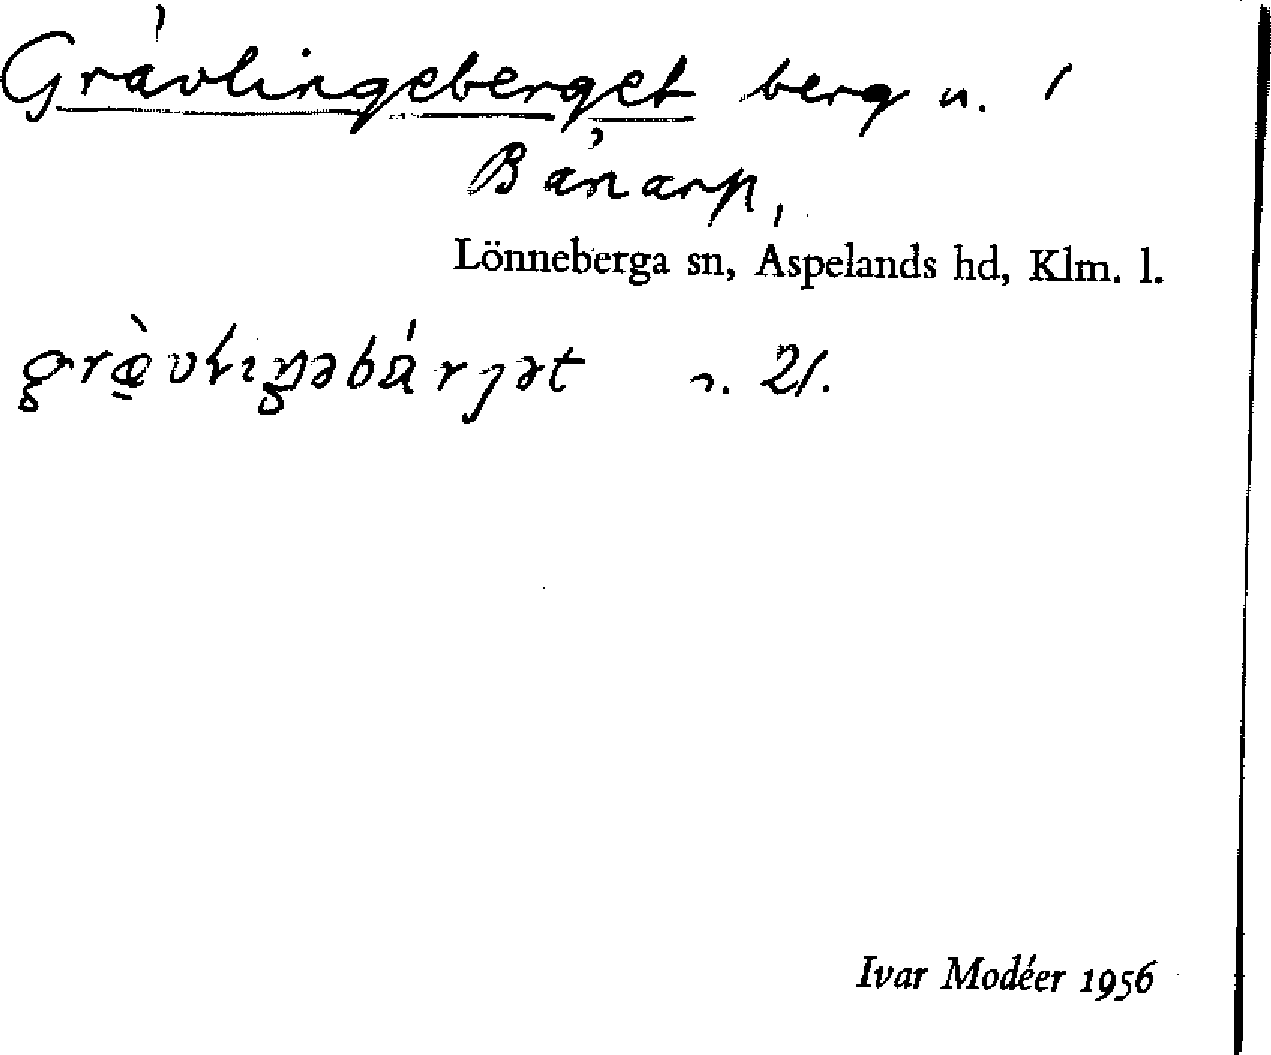 Grävlingeberget berg n. /
Bånarp,
Lönneberga sn, Aspelands hd, Klm. l.
n. 21.
Ivar Modéer 1956